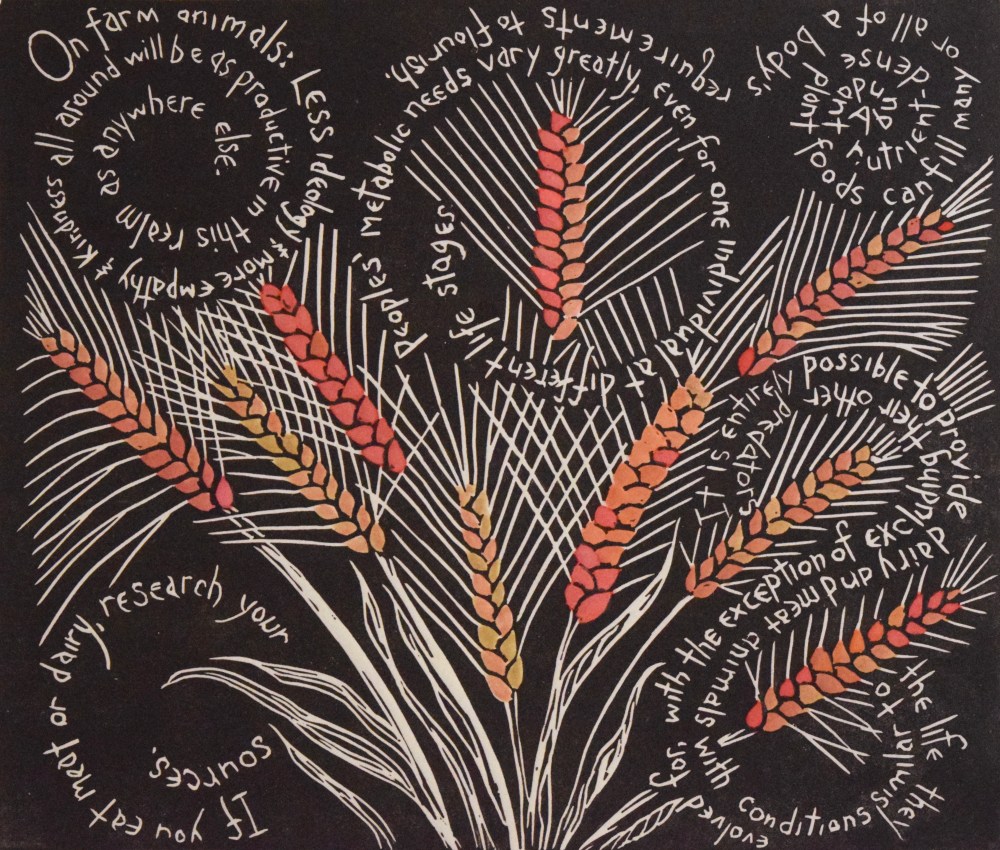 On farm animals: Less ideology & more empathy & Kindness all around will be as productive in this realm as anywhere else.
Peoples' metabolic needs vary greatly, even for one individual at different life stages.
Abundant nutrient-dense plant foods can fill many or all of a body's requirements to flourish.
It is entirely possible to provide dairy and meat animals with conditions similar to the life they evolved for, with the exception of excluding their other predators
If you eat meat or dairy, research your sources.